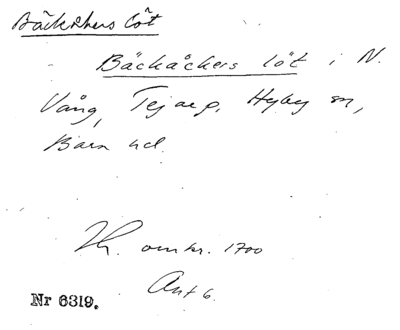 Bäckåkers löt
Bäckåckers löt i N.
Vång, Tejarp, Hyby sn,
Bara hd.
Th. omkr. 1700
Ant 6.
Nr 6319.